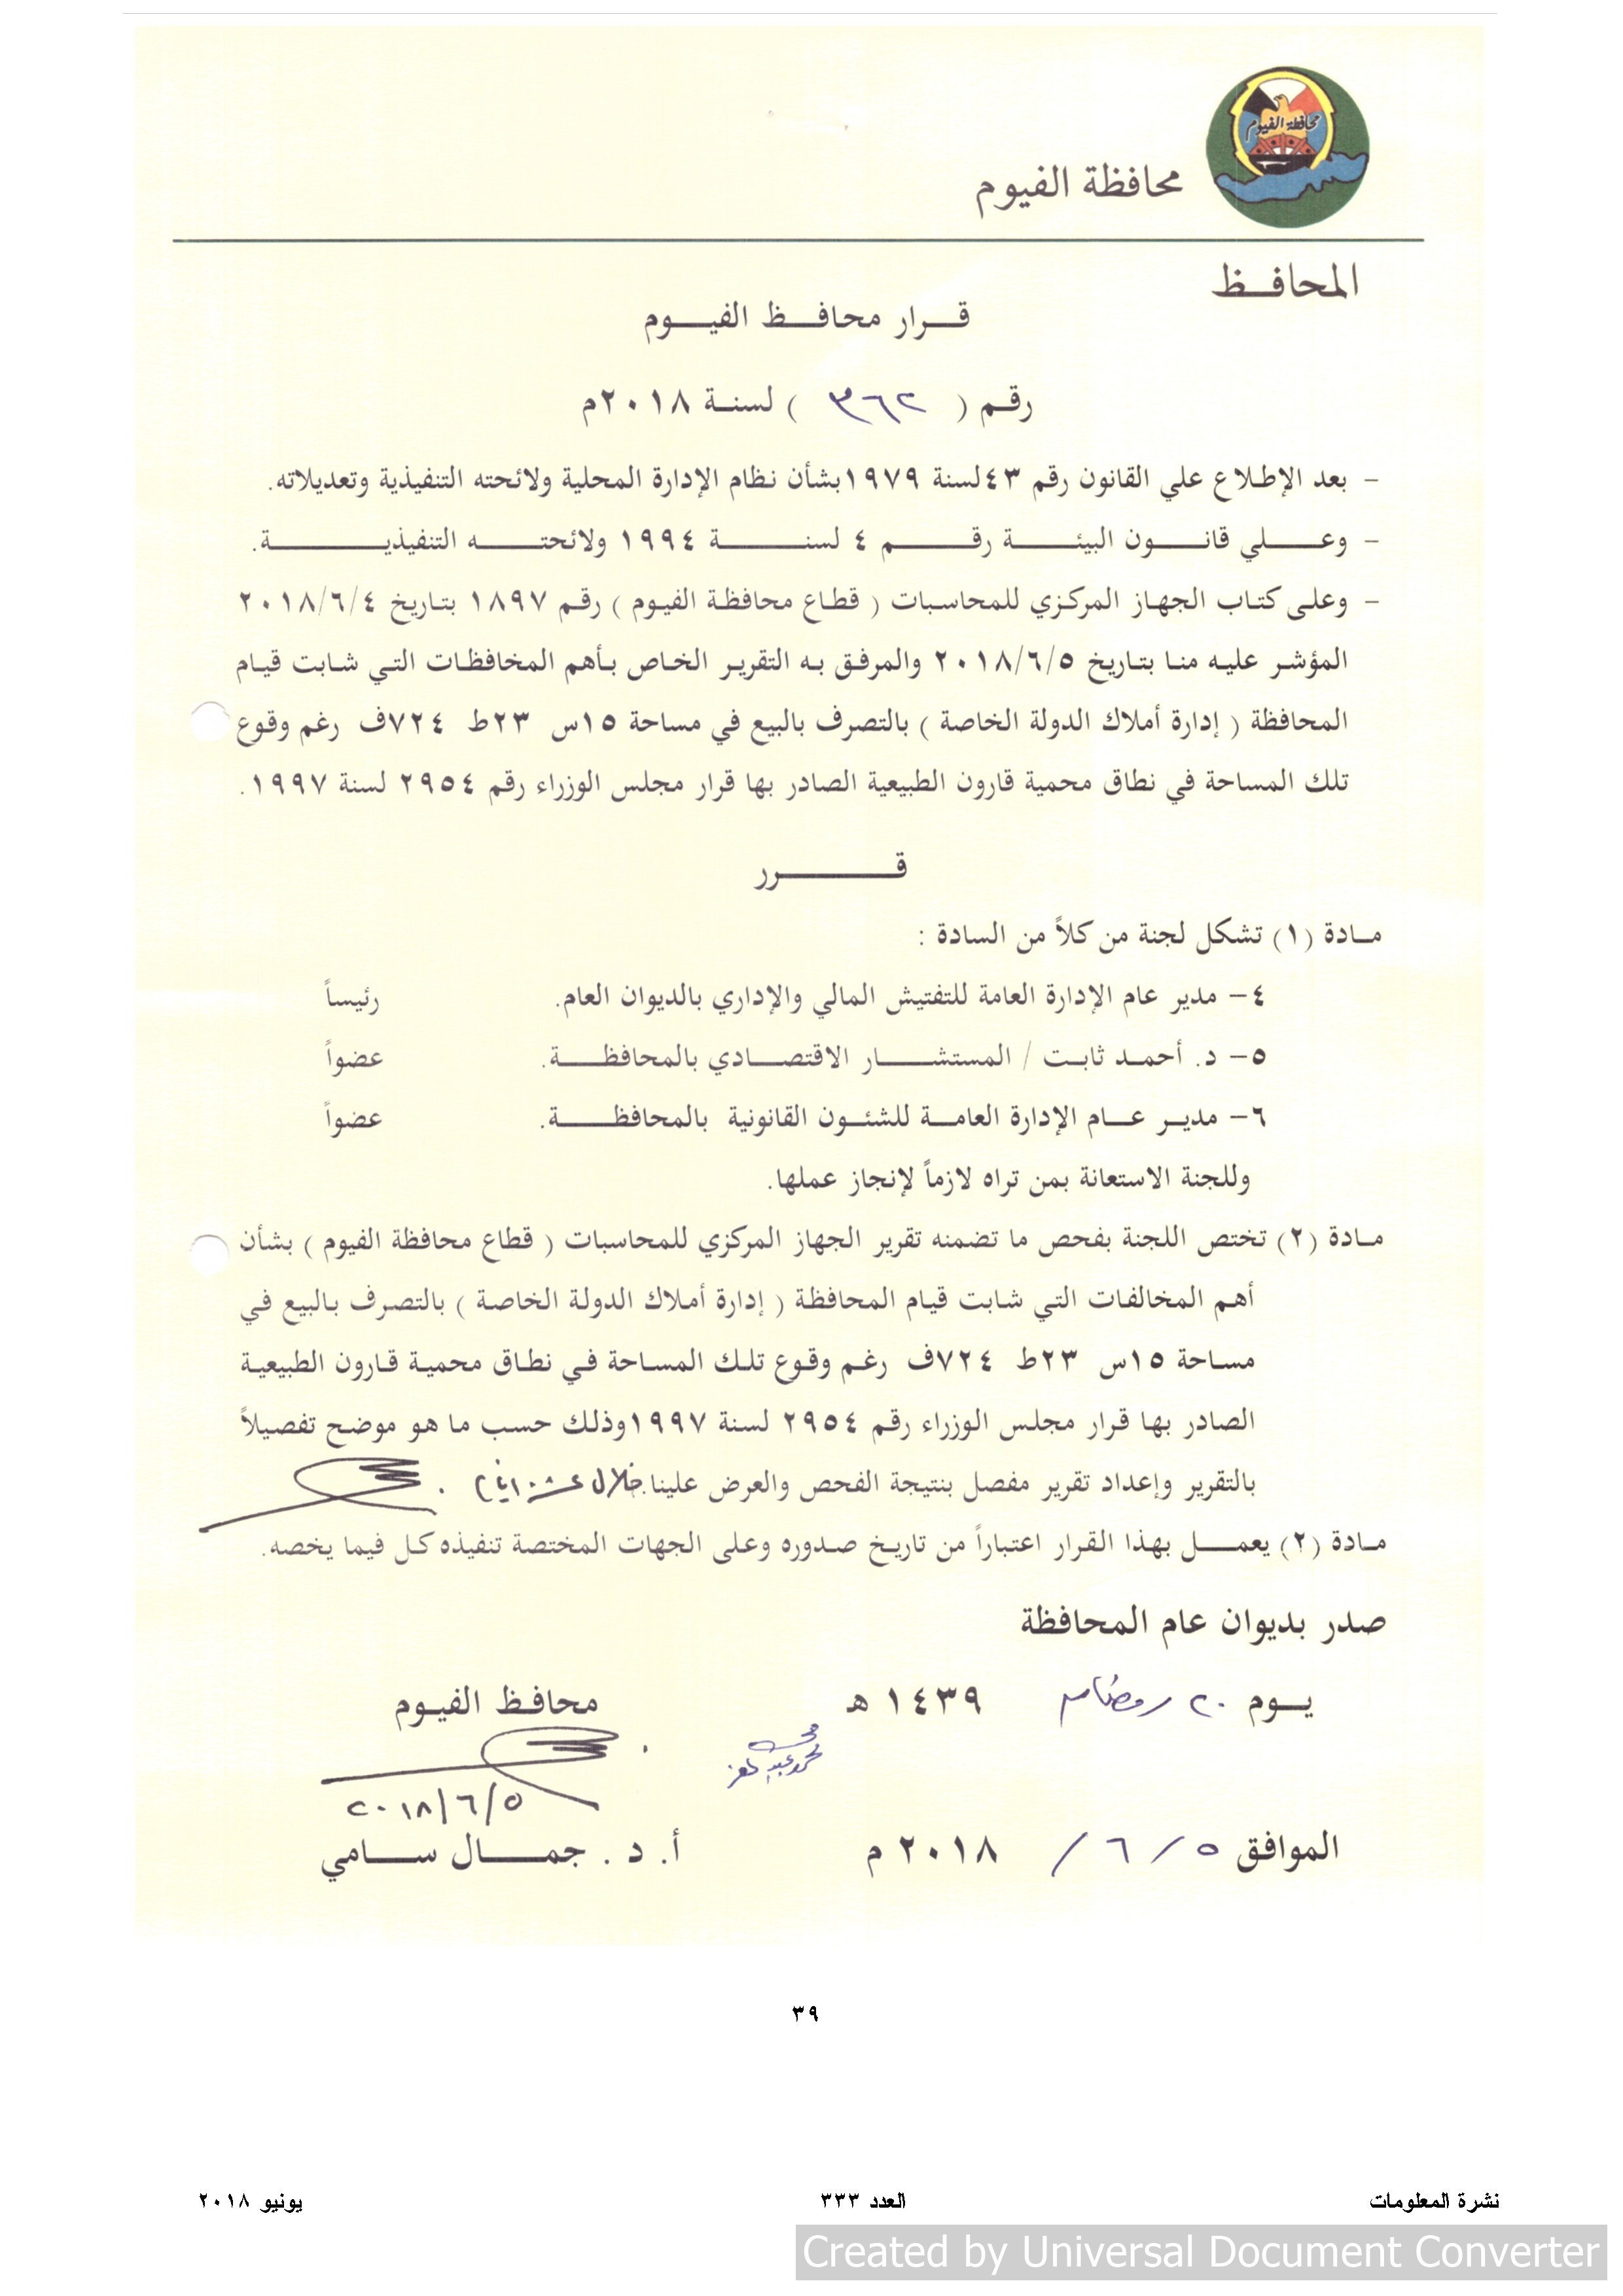 محافظة الفيوم
محافظة الفيوم
المحافظ
قرار محافظ الفيوم
رقم ( ٣٦٢ ) لسنة ٢٠١٨م
- بعد الإطلاع علي القانون رقم ٤٣لسنة ١٩٧٩بشأن نظام الإدارة المحلية ولائحته التنفيذية وتعديلاته.
- وعلي قانون البيئة رقم ٤ لسنة ١٩٩٤ ولائحته التنفيذية.
- وعلى كتاب الجهاز المركزي للمحاسبات ( قطاع محافظة الفيوم ) رقم ١٨٩٧ بتاريخ ٢٠١٨/٦/٤
المؤشر عليه منا بتاريخ ٢٠١٨/٦/٥ والمرفق به التقرير الخاص بأهم المخافظات التي شابت قيام
المحافظة ( إدارة أملاك الدولة الخاصة ) بالتصرف بالبيع في مساحة ١٥س ٢٣ط ٧٢٤ف رغم وقوع
تلك المساحة في نطاق محمية قارون الطبيعية الصادر بها قرار مجلس الوزراء رقم ٢٩٥٤ لسنة ١٩٩٧.
قرر
مادة (١) تشكل لجنة من كلاً من السادة :
٤- مدير عام الإدارة العامة للتفتيش المالي والإداري بالديوان العام. رئيساً
٥- د. أحمد ثابت / المستشار الاقتصادي بالمحافظة. عضواً
٦- مدير عام الإدارة العامة للشئون القانونية بالمحافظة. عضواً
وللجنة الاستعانة بمن تراه لازماً لإنجاز عملها.
مادة (٢) تختص اللجنة بفحص ما تضمنه تقرير الجهاز المركزي للمحاسبات ( قطاع محافظة الفيوم ) بشأن
أهم المخالفات التي شابت قيام المحافظة ( إدارة أملاك الدولة الخاصة ) بالتصرف بالبيع في
مساحة ١٥س ٢٣ط ٧٢٤ف رغم وقوع تلك المساحة في نطاق محمية قارون الطبيعية
الصادر بها قرار مجلس الوزراء رقم ٢٩٥٤ لسنة ١٩٩٧وذلك حسب ما هو موضح تفصيلاً
بالتقرير وإعداد تقرير مفصل بنتيجة الفحص والعرض علينا. خلال عشرة أيام .
مادة (٢) يعمل بهذا القرار اعتباراً من تاريخ صدوره وعلى الجهات المختصة تنفيذه كل فيما يخصه.
صدر بديوان عام المحافظة
يوم ٢٠ رمضان ١٤٣٩ هـ
محافظ الفيوم
٢٠١٨/٦/٥
الموافق ٥ / ٦ / ٢٠١٨ م
أ. د . جمال سامي
٣٩
نشرة المعلومات العدد ٣٣٣ يونيو ٢٠١٨
Created by Universal Document Converter